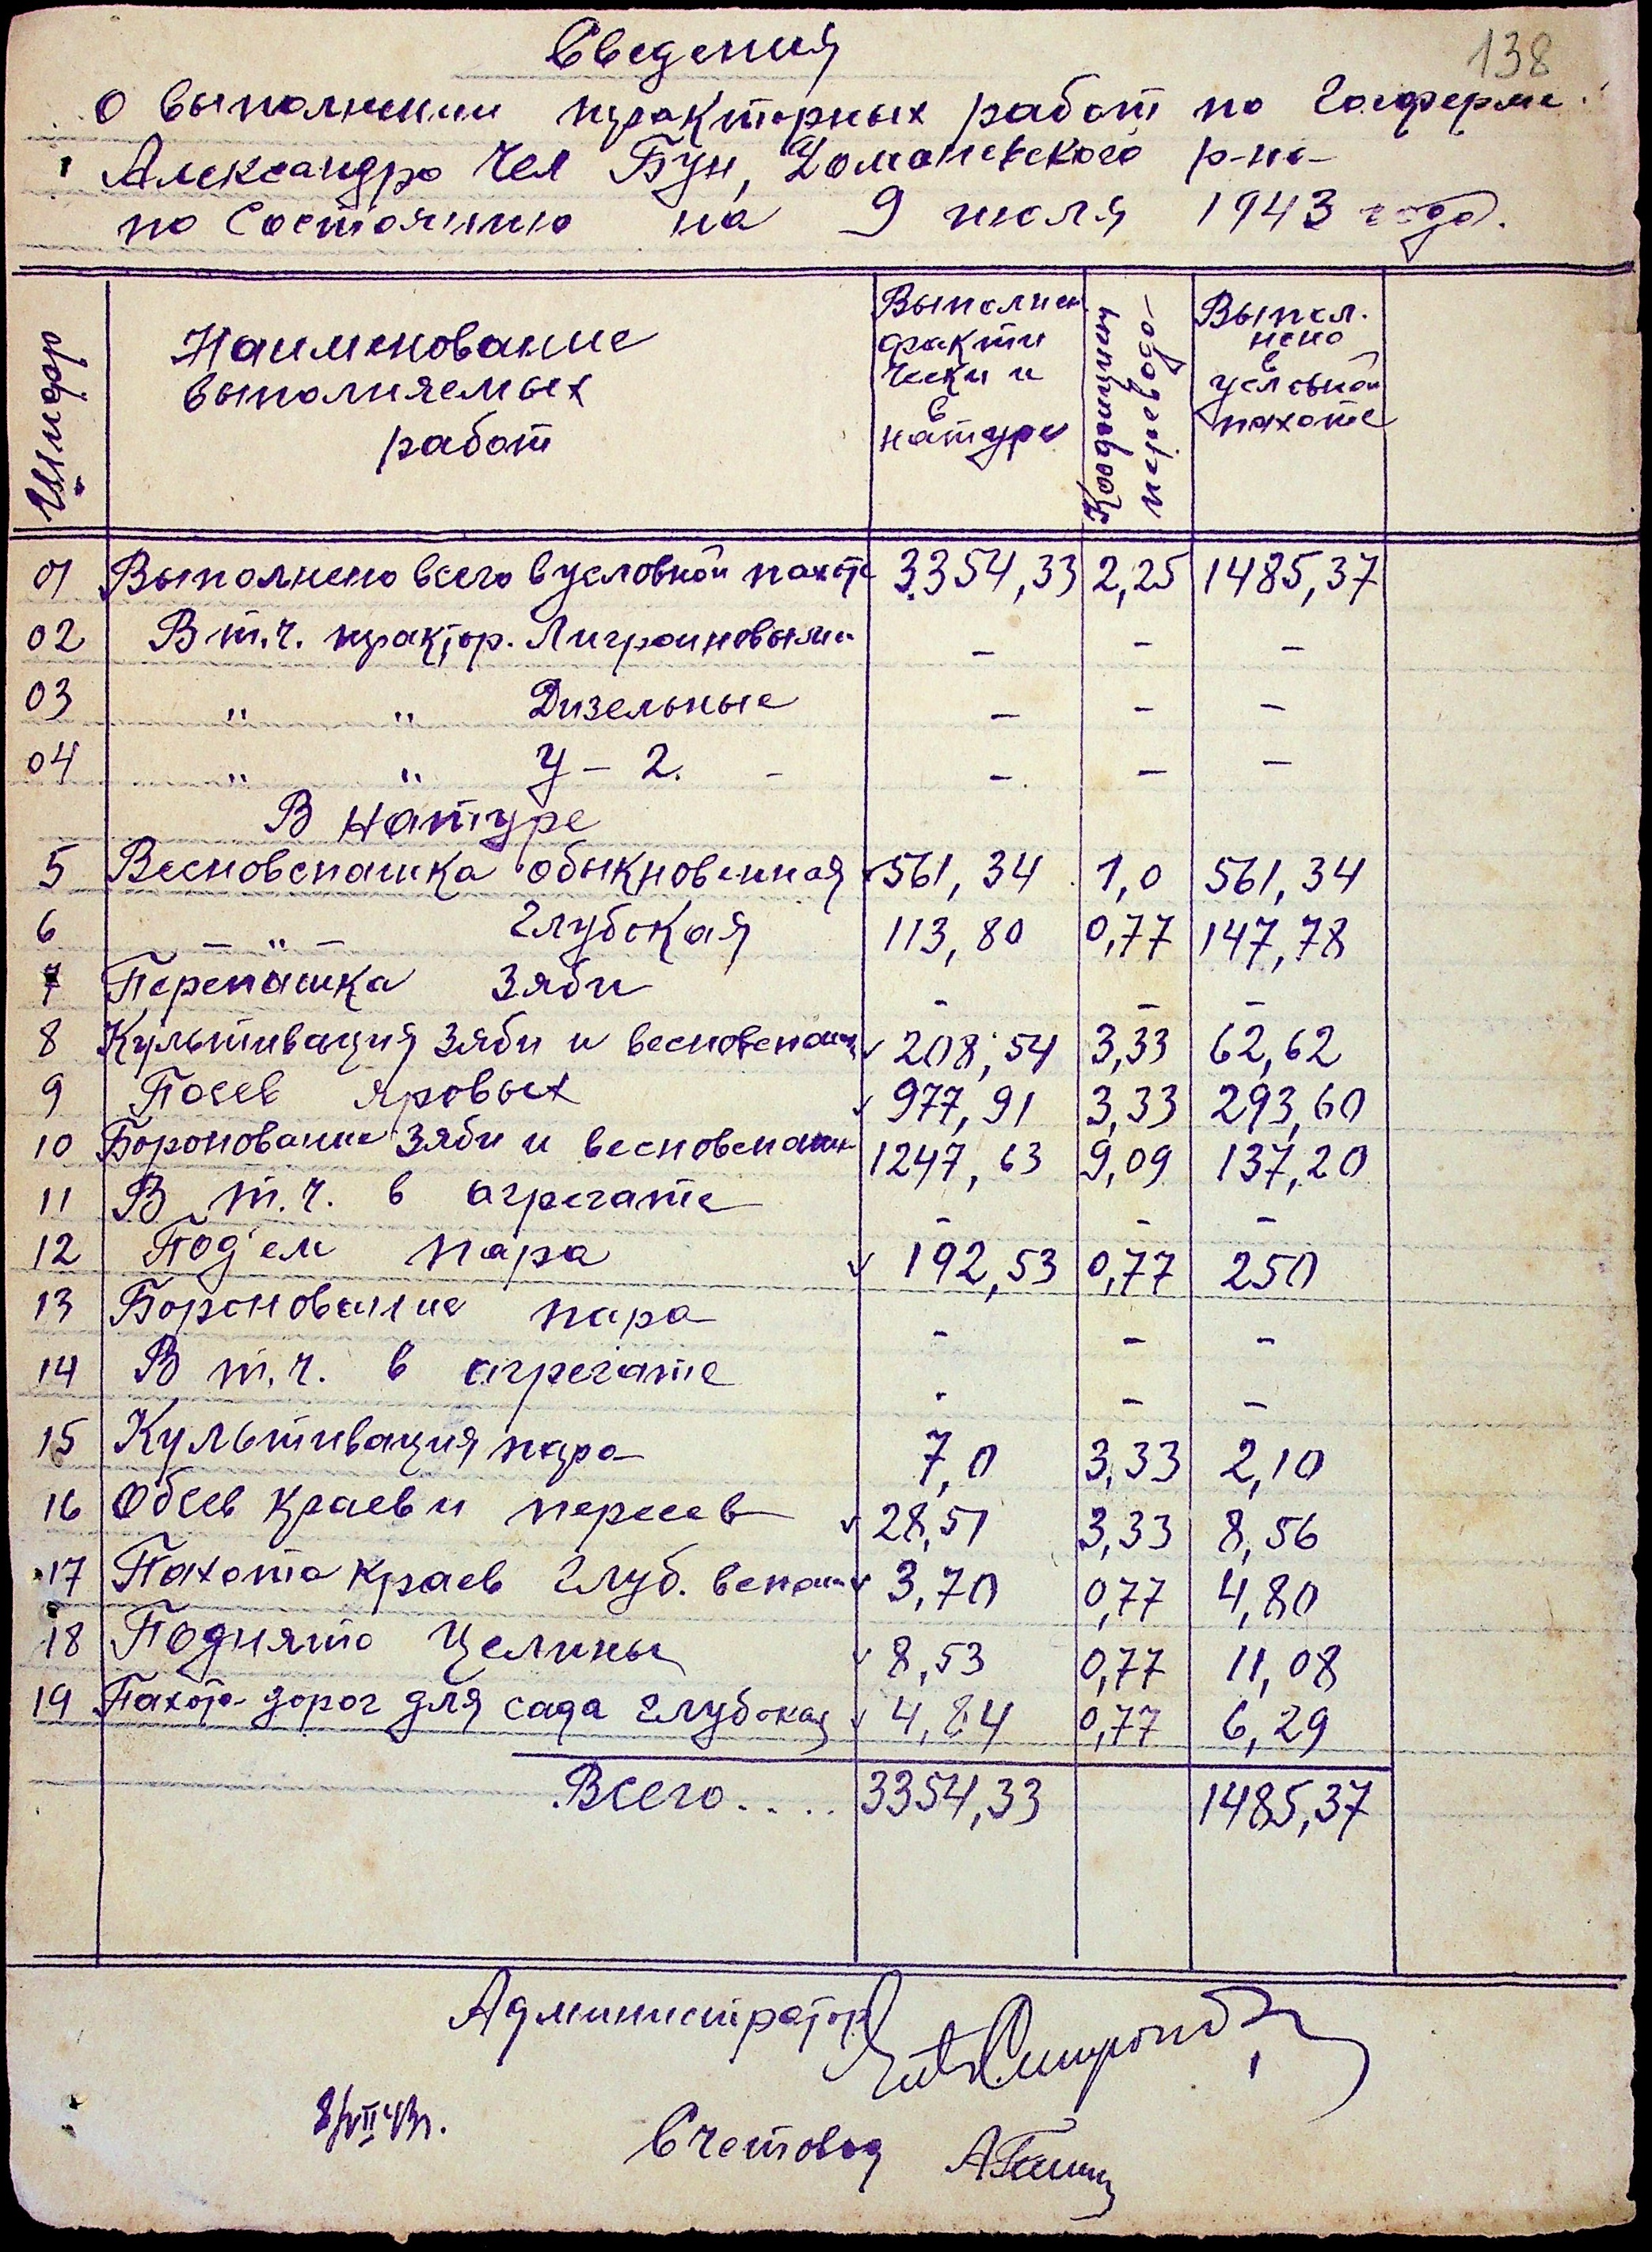 138
Сведения
О выполнении тракторных работ по Госферме
Александро Чел Бун, Доманевского р-на
по состоянию на 9 июля 1943 года.
Шифр
Наименование
выполняемых
работ
Выполнен
факти
чески и
в
натуре
Коэфициент
переводо-
Выпол.
нено
в
условной
пахоте
01 Выполнено всего в условной пахоте 3354,33 2,25 1485,37
02 В т.ч. трактор. Лигроиновыми – – –
03 " " Дизельные – – –
04 " " У – 2. – – – –
В натуре
5 Весновспашка обыкновенная 561,34 1,0 561,34
6 – " – Глубокая 113,80 0,77 147,78
7 Перепашка Зяби – – –
8 Культивация Зяби и весновспаш 208,54 3,33 62,62
9 Посев яровых 977,91 3,33 293,60
10 Боронование Зяби и весновспаш 1247,63 9,09 137,20
11 В т.ч. в агрегате – – –
12 Под'ем пара 192,53 0,77 250
13 Боронование пара – – –
14 В т.ч. в агрегате – – –
15 Культивация пара 7,0 3,33 2,10
16 Обсев краев и пересев 28,51 3,33 8,56
17 Пахота краев глуб. вспаш 3,70 0,77 4,80
18 Поднято Целины 8,53 0,77 11,08
19 Пахота дорог для сада глубокая 4,84 0,77 6,29
Всего..... 3354,33 1485,37
Администратор
8/VII 43г.
Счетовод